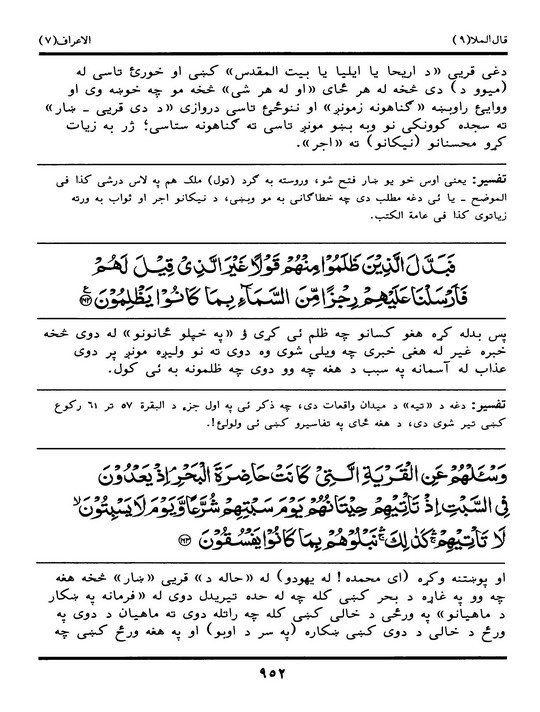 قال الملا(٩)
الاعراف(٧)
دغی قریی «د اریحا یا ایلیا یا بیت المقدس» کښی او خورئ تاسی له
(میوو د) دی څخه له هر ځای «او له هر شی» څخه مو چه خوښه وی او
ووایئ راوبښه «گناهونه زمونږ» او ننوځئ تاسی دروازی «د دی قریی ـ ښار» ته
ته سجده کوونکی نو وبه بښو مونږ تاسی ته گناهونه ستاسی؛ ژر به زیات
کړو محسنانو (نیکانو) ته «اجر».
تفسیر: یعنی اوس خو یو ښار فتح شو، وروسته به گرد (تول) ملک هم په لاس درشی کذا فی
الموضح ـ یا ئی دغه مطلب دی چه خطاگانی به مو وبښی، د نیکانو اجر او ثواب به ورته
زیاتوی کذا فی عامة الکتب.
فَبَدَّلَ الَّذِيْنَ ظَلَمُوْا مِنْهُمْ قَوْلًا غَيْرَ الَّذِيْ قِيْلَ لَهُمْ
فَاَرْسَلْنَا عَلَيْهِمْ رِجْزًا مِّنَ السَّمَآءِ بِمَا كَانُوْا يَظْلِمُوْنَ ۝١٦٢
پس بدله کړه هغو کسانو چه ظلم ئی کړی ؤ «په خپلو ځانونو» له دوی څخه
خبره غیر له هغی خبری چه ویلی شوی وه دوی ته نو ولیږه مونږ پر دوی
عذاب له آسمانه په سبب د هغه چه وو دوی چه ظلمونه به ئی کول.
تفسیر: دغه د «تیه» د میدان واقعات دی، چه ذکر ئی په اول جزء د البقرة ٥٧ تر ٦١ رکوع
کښی تیر شوی دی، د هغه ځای په تفاسیرو کښی ئی ولولئ!.
وَسْـَٔلْهُمْ عَنِ الْقَرْيَةِ الَّتِيْ كَانَتْ حَاضِرَةَ الْبَحْرِ اِذْ يَعْدُوْنَ
فِي السَّبْتِ اِذْ تَاْتِيْهِمْ حِيْتَانُهُمْ يَوْمَ سَبْتِهِمْ شُرَّعًا وَّيَوْمَ لَا يَسْبِتُوْنَ ۙ
لَا تَاْتِيْهِمْ ۚ كَذٰلِكَ ۚ نَبْلُوْهُمْ بِمَا كَانُوْا يَفْسُقُوْنَ ۝١٦٣
او پوښتنه وکړه (ای محمده! له یهودو) له «حاله د» قریی «ښار» څخه هغه
چه وو په غاړه د بحر کښی کله چه له حده تیریدل دوی له «فرمانه په ښکار
د ماهیانو» په ورځی د خالی کښی کله چه راتله دوی ته ماهیان د دوی په
ورځ د خالی د دوی کښی ښکاره (په سر د اوبو) او په هغه ورځ کښی چه
٩٥٢